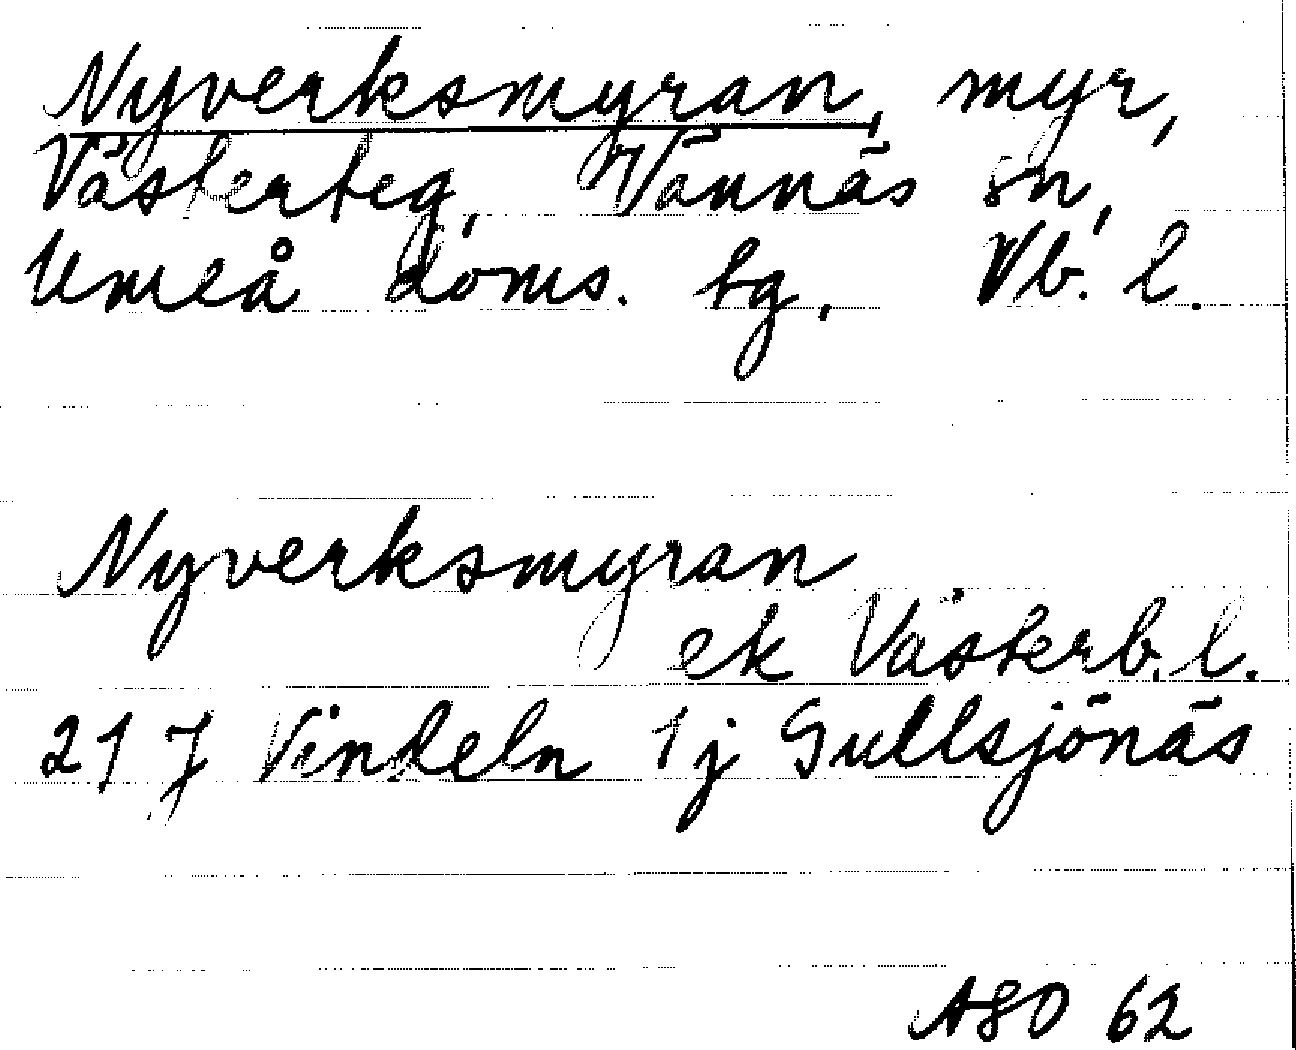 Nyverksmyran, myr,
Västerteg, Vännäs sn,
Umeå doms. tg, Vb. l.
Nyverksmyran
ek Västerb. l.
21 J Vindeln 1j Gullsjönäs
ASO 62